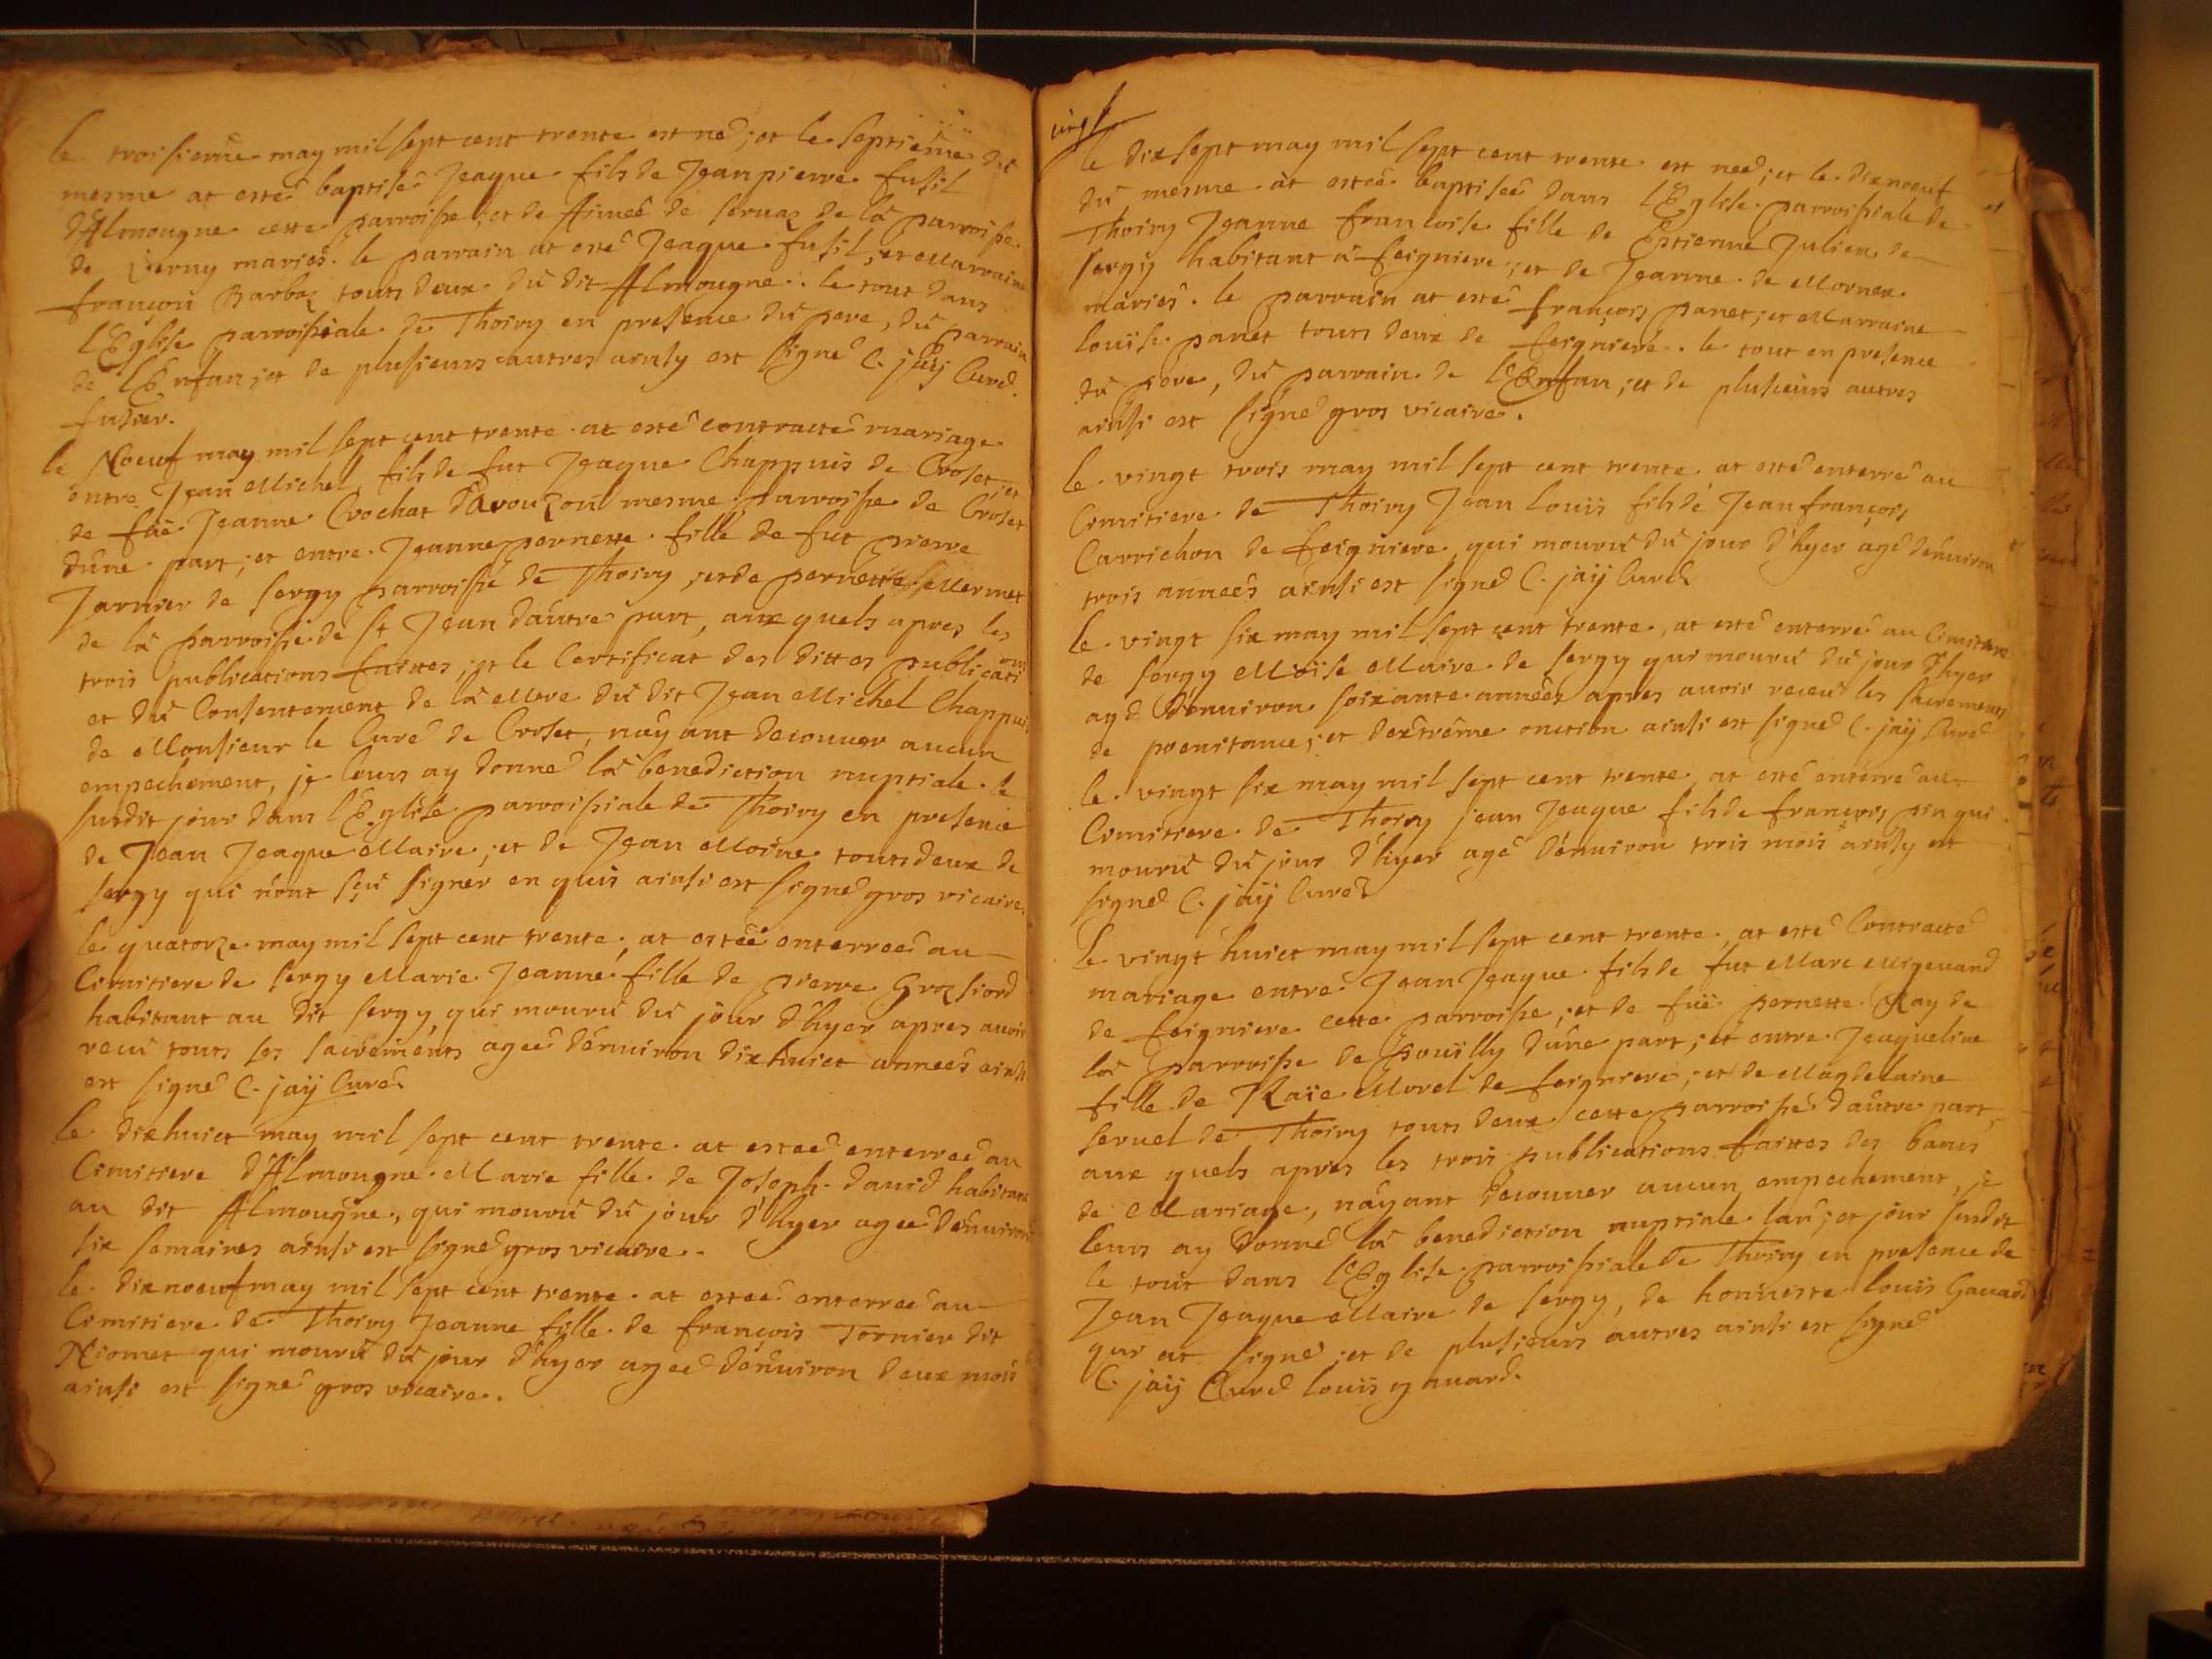 le troisieme may mil sept cent trente est né; et le septieme dit
mesme at esté baptisé Jeaque fils de Jean pierre fusil
d'Almougne cette parroisse; et de Aimeé de seruaz de la parroise
de Verny mariés. le parrain at esté Jeaque fusil, et Marraine
françoise Barbaz touts deux du dit Almougne. le tout dans
l'Eglise parroissiale de Thoiry en presence du pere, du parrain
de l'Enfan; et de plusieurs autres ainsy est signé C. jaÿ Curé.
fusier.
le Noeuf may mil sept cent trente at esté contracté mariage
entre Jean Michel fils de fut Jeaque Chappuis de Croset, et
de füe Jeanne Crochat d'avouzon mesme parroisse de Croset
dune part; et entre Jeanne pernette fille de fut pierre
Jarnier de sergy parroisse de Thoiry; et de pernette Mermet
de la parroisse de st Jean dautre part, aux quels apres les
trois publications faittes; et le Certificat des dittes publications
et du Consentement de la Mere du dit Jean Michel Chappuis
de Monsieur le Curé de Croset, nayant decouuer aucun
empechement, je leurs ay donné la benediction nuptiale le
susdit jour dans l'Eglise parroissiale de Thoiry en presence
de Jean Jeaque Maire; et de Jean Moine touts deux de
sergy qui nont sçu signer en quis ainsi est signé gros vicaire.
le quatorze may mil sept cent trente, at estée enterreé au
Cimitiere de sergy Marie Jeanne fille de pierre Grozfiord
habitant au dit sergy, qui mouru du jour d'hyer apres auoir
recu touts ses sacrements ageé dénuiron dix huict anneés ainsi
est signé C. jaÿ Curé
le dix huict may mil sept cent trente at esteé enterreé au
Cimitiere d'Almougne Marie fille de Joseph dauid habitant
au dit Almougne, qui mouru du jour d'hyer ageé dénuiron
six semaines ainsi est signé gros vicaire.
le dix noeuf may mil sept cent trente at esteé enterreé au
Cimitiere de Thoiry Jeanne fille de françois Tornier dit
Niomet qui mouru du jour d'hyer ageé dénuiron deux mois
ainsi est signé gros vicaire.
vingt
le dix sept may mil sept cent trente est neé; et le dix noeuf
du mesme at esteé baptiseé dans l'Eglise parroissiale de
Thoiry Jeanne francoise fille de Estienne Julien de
sergy habitant à feigniere; et de Jeanne de Mornex
mariés. le parrain at esté françois panet; et Marraine
louïse panet touts deux de feigniere. le tout en presence
du pere, du parrain de l'Enfan; et de plusieurs autres
ainsi est signé gros vicaire.
le vingt trois may mil sept cent trente at esté enterré au
Cimitiere de Thoiry Jean louis fils de Jean françois
Carrichon de feigniere, qui mouru du jour d'hyer agé dénuiron
trois anneés ainsi est signé C. jaÿ Curé
le vingt six may mil sept cent trente, at esté enterré au Cimitiere
de sergy Moïse Maire de sergy qui mouru du jour d'hyer
agé dénuiron soixante anneés apres auoir receu les sacrements
de poenitance; et dextrême onction ainsi est signé C. jaÿ Curé
le vingt six may mil sept cent trente at esté enterré au
Cimitiere de Thoiry jean Jeaque fils de françois pin qui
mouru du jour d'hyer agé dénuiron trois mois ainsy est
signé C. jaÿ Curé
le vingt huict may mil sept cent trente, at esté Contracté
mariage entre Jean Jeaque fils de fut Marc Migeuand
de feigniere cette parroisse; et de füe pernette Ray de
la parroisse de pouïlly dune part; et entre Jeaqueline
fille de Raïe Morel de feigniere; et de Magdelaine
seruel de Thoiry touts deux cette parroisse dautre part,
aux quels apres les trois publications faittes des bancs
de Mariage, nayant decouuer aucun empechement, je
leurs ay donné la benediction nuptiale lan; et jour susdit
le tout dans l'Eglise parroissiale de Thoiry en presence de
Jean Jeaque Maire de sergy, de honneste louis Gauard
qui at signé; et de plusieurs autres ainsi est signé
C. jaÿ Curé louis gauard.